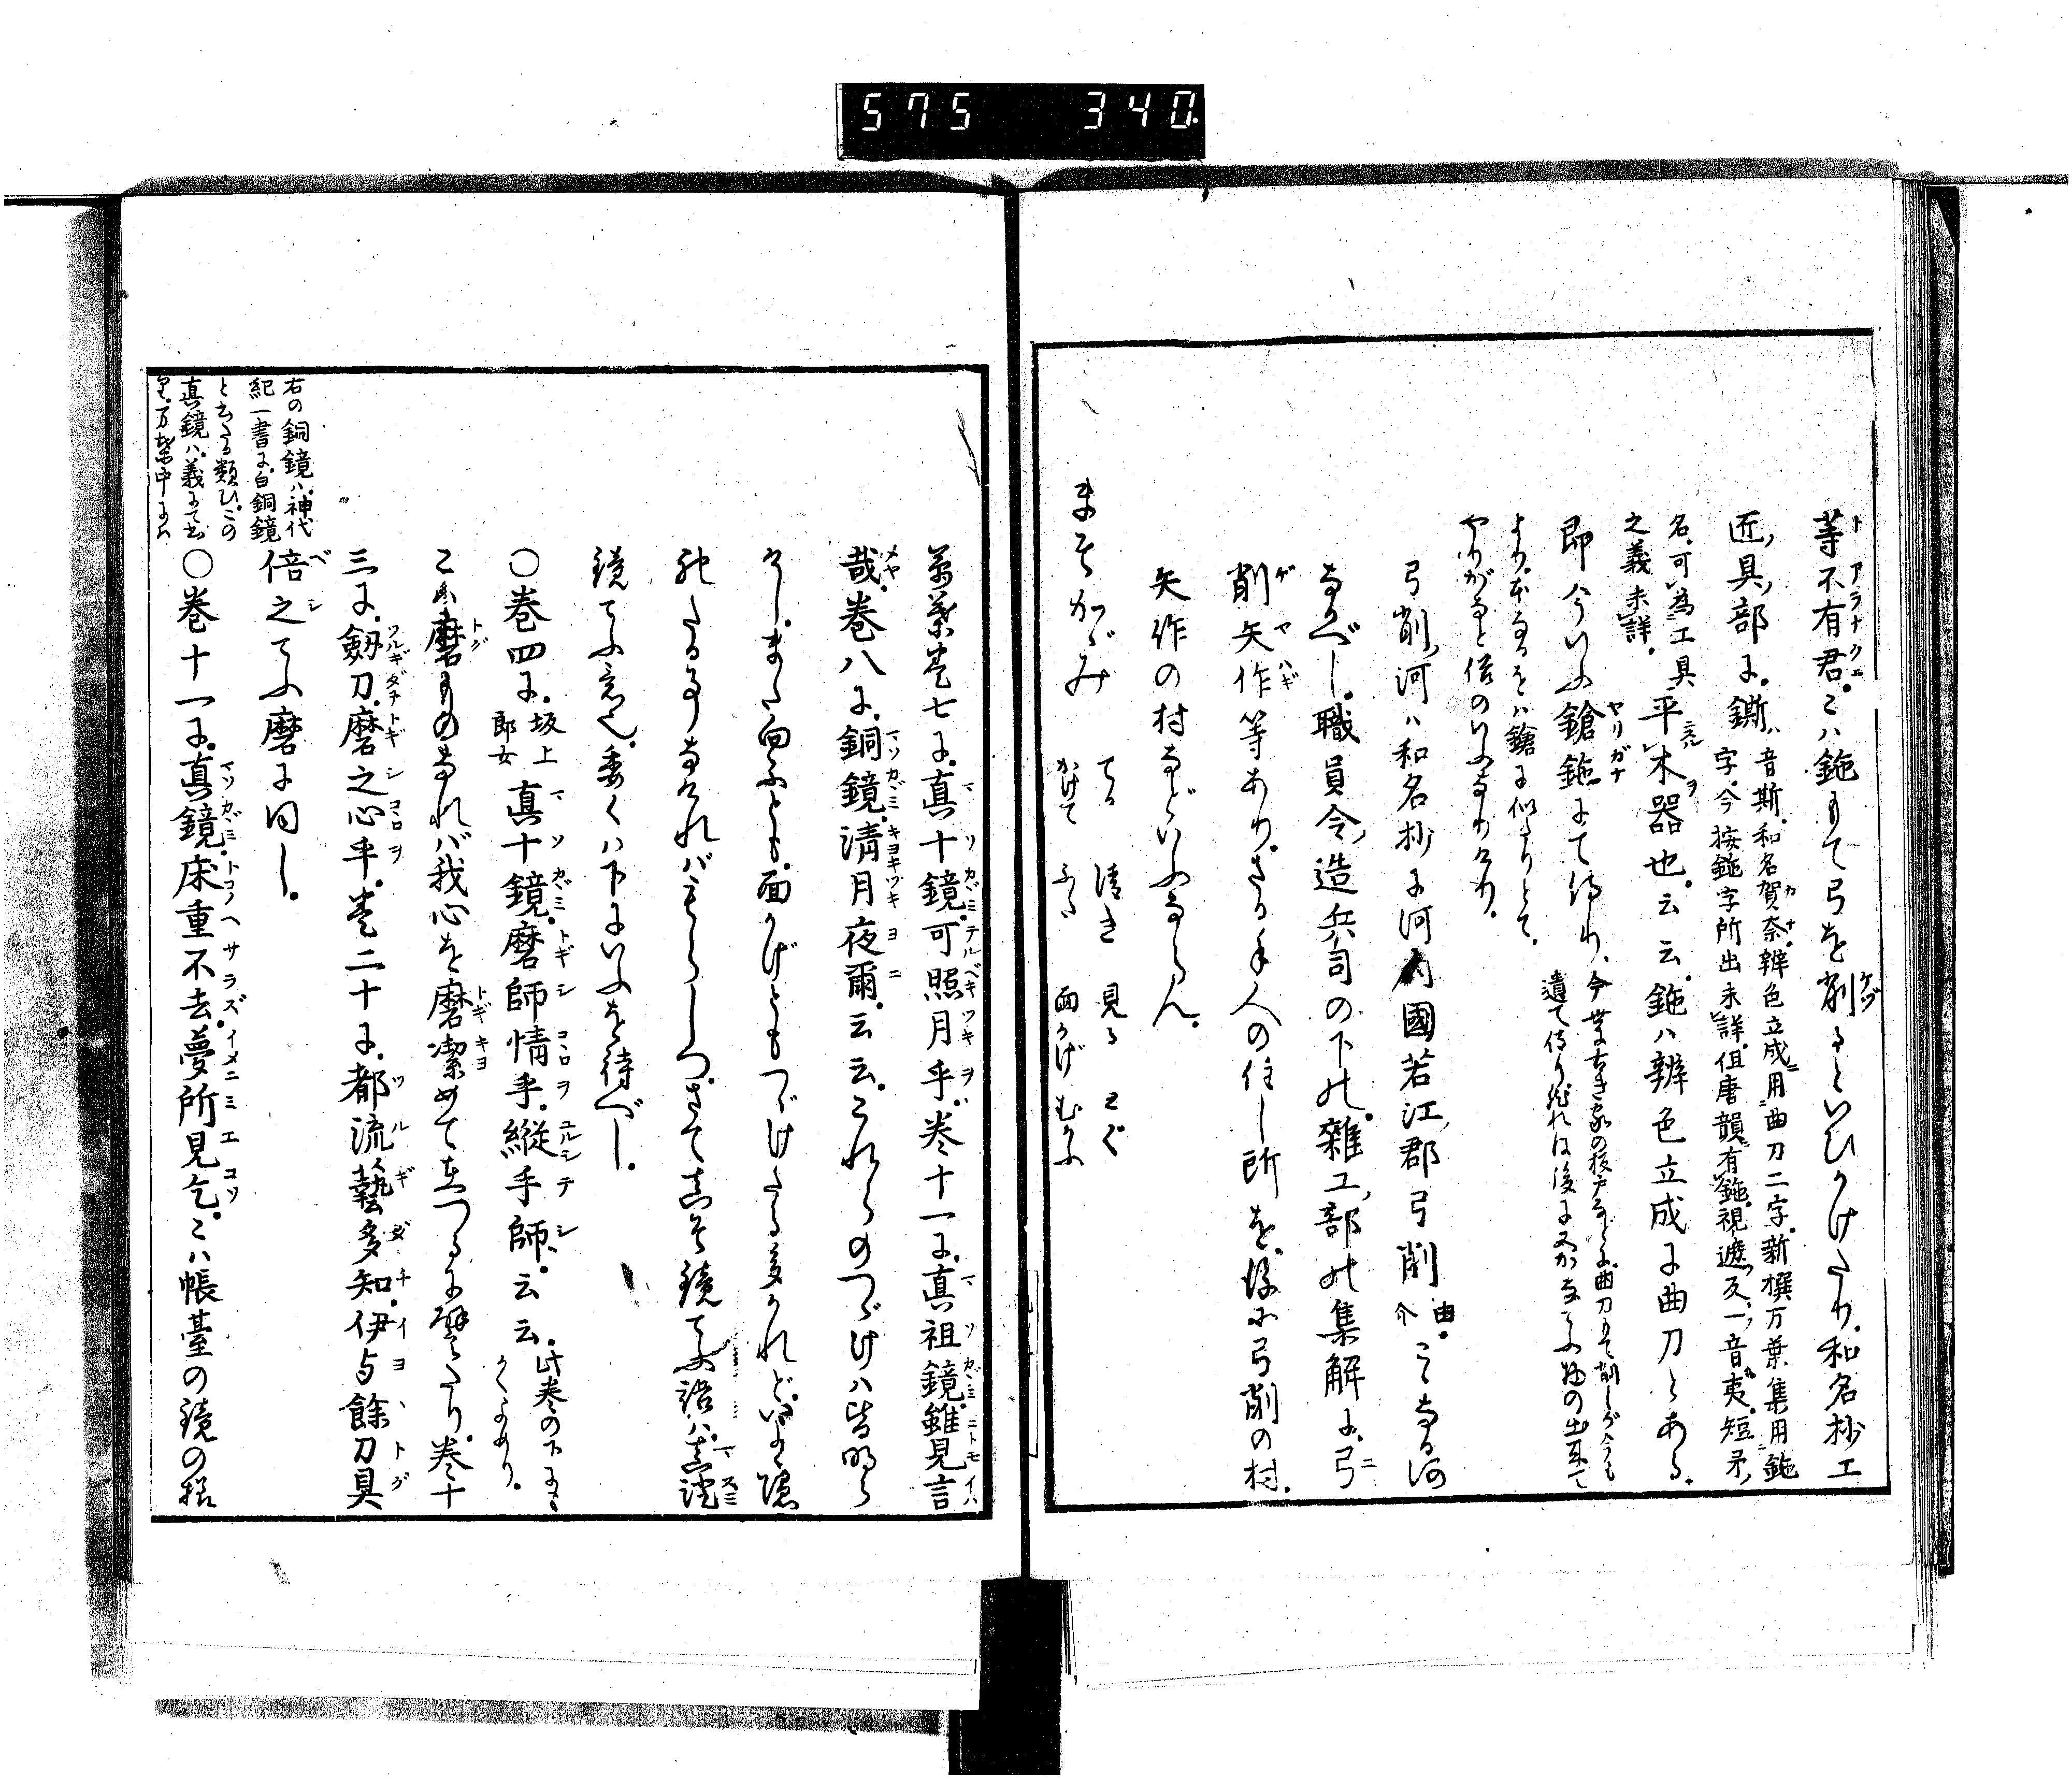 575 340
等不有君。こハ鉇もて弓を削るといひかけたり。和名抄工
匠具部に。鐁ハ音斯。和名賀奈。辨色立成用曲刀二字。新撰万葉集用鉇
字。今按鉇字所出未詳。但唐韻有鉇。視遮反。一音夷。短矛
名。可為工具
之義未詳。平木器也。云云。鉇ハ辨色立成に曲刀とある。
即今いふ鎗鉇にて侍り。今世に古き家の板戸などは。曲刀もて削しが今も
遺て侍り
より。本なるをハ鎗に似たりとて。
やりがなと俗のいふなりけり。
弓削河ハ和名抄に河内國若江郡弓削由介。こゝなる河
なるべし。職員令造兵司の下の。雜工部の集解に。弓
削矢作等あり。さる手人の住し所を。弓削の村。
矢作の村などいふならん。
まそかゞみ てる 清き 見る とぐ
かけて ふた 面かげ むかふ
萬葉巻七に。真十鏡。可照月乎。巻十一に。真祖鏡。雖見言
哉。巻八に。銅鏡。清月夜爾。云云。これらのつゞけハ皆明ら
けし。また向ふとも。面かげともつゞけたる多かれど。
たる事なければもらしつ。さて真そ鏡てふ語ハ。真澄
鏡てふ意也。委くハ下にいふを待べし。
○巻四に。坂上
郎女 真十鏡。磨師情乎。縦手師。云云。此巻の下にも
かくよめり。
こハ磨ものなれバ我心を磨潔めて在つるに譬たり。巻十
三に。剱刀。磨之心乎。巻二十に。都流藝多知。伊与餘刀具
倍之てふ磨に同し。
○巻十一に。真鏡。床重不去。夢所見乞。こハ帳臺の鏡の
右の銅鏡ハ。神代
紀一書に。白銅鏡
とある類ひ。この
真鏡ハ。義にて書
り。万葉中にハ